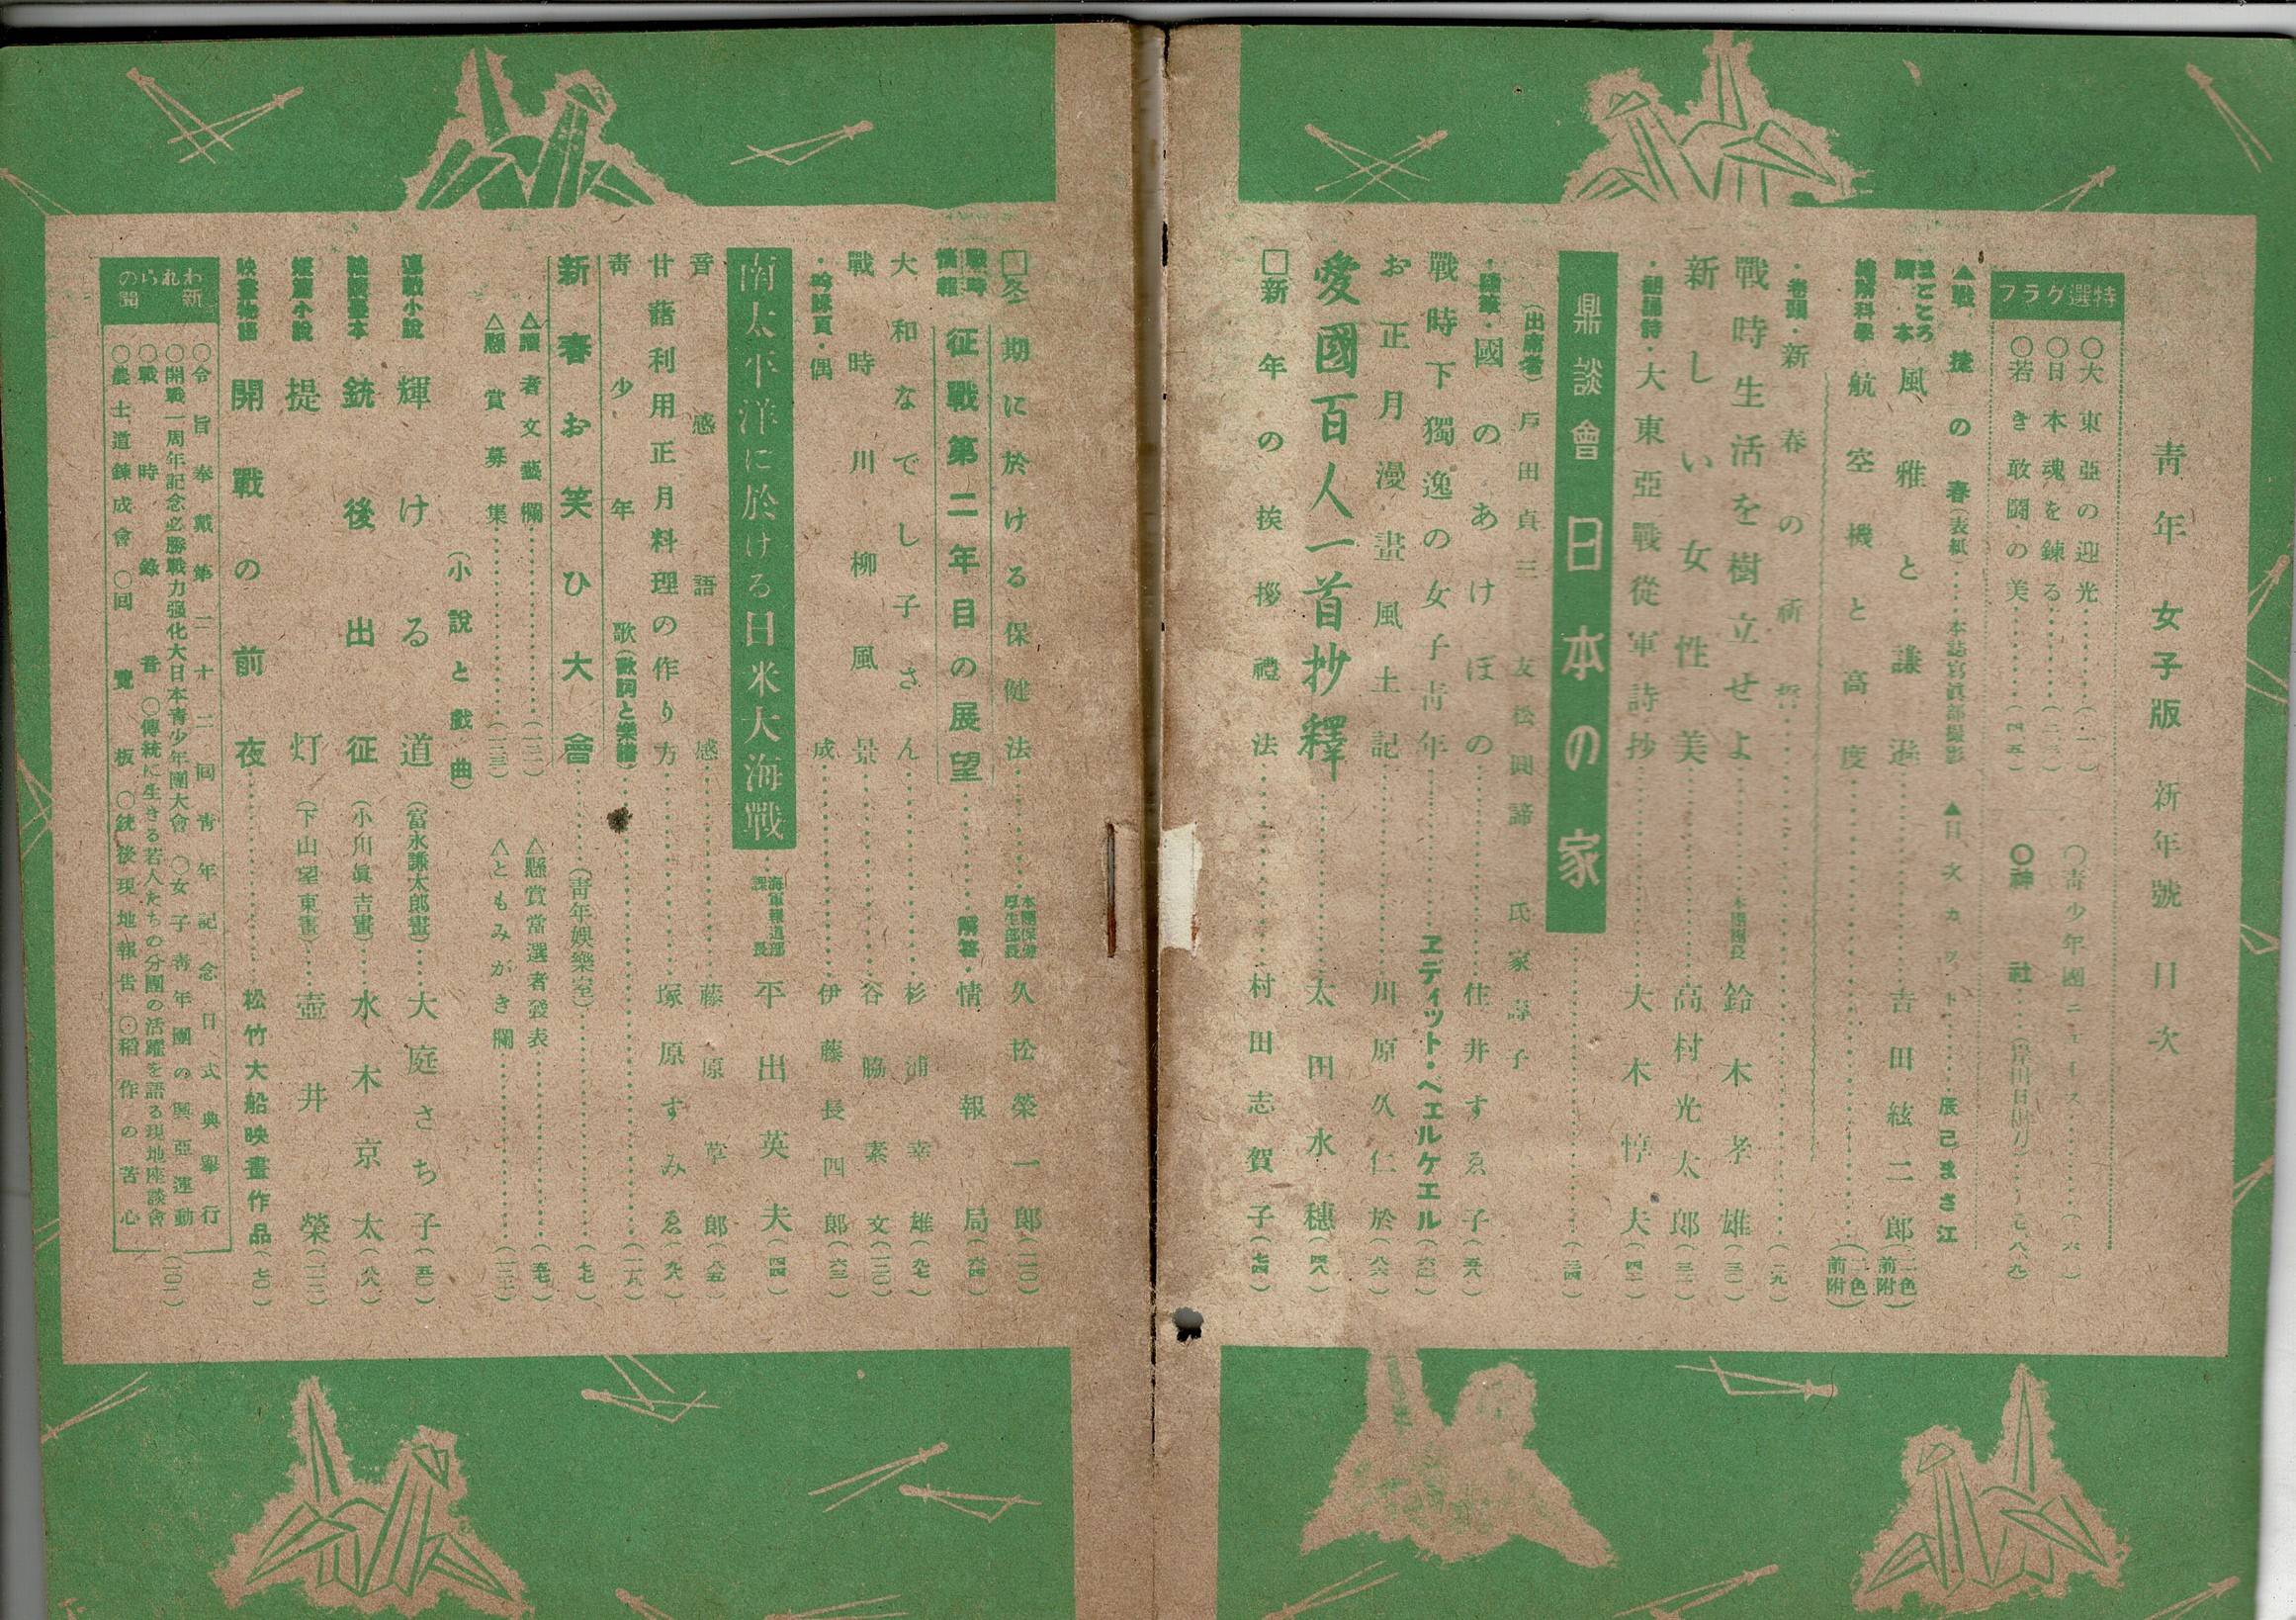 青年 女子版 新年號目次
特選グラフ
○大東亞の迎光……(一)
○日本魂を錬る……(二・三)
○若き敢鬪の美……(四・五)
○青少年團ニュース……(六)
○神社……
▲戰捷の春(表紙)……本誌寫眞部撮影
▲目次カット……辰己まさ江
風雅と謙遜……吉田絃二郎(二色前附)
航空機と高度……(二色前附)
・卷頭・新春の祈誓……(一九)
戰時生活を樹立せよ……本團團長 鈴木孝雄(二〇)
新しい女性美……高村光太郎(三二)
大東亞戰從軍詩抄……大木惇夫(四二)
鼎談會 日本の家……(二四)
(出席者)戸田貞三 友松圓諦 氏家壽子
・隨筆・國のあけぼの……住井すゑ子(五八)
戰時下獨逸の女子青年……エディット・ヘェルケェル(六二)
お正月漫畫風土記……川原久仁於(八六)
愛國百人一首抄釋……太田水穗(四八)
□新年の挨拶禮法……村田志賀子(七四)
□冬期に於ける保健法……本團保健厚生部長 久松榮一郎(一一〇)
戰時情報 征戰第二年目の展望……解答・情報局(六四)
大和なでし子さん……杉浦幸雄(九七)
戰時川柳風景……谷脇素文(一三〇)
偶成……伊藤長四郎(六三)
南太平洋に於ける日米大海戰……海軍報道部課長 平出英夫(四四)
音感語感……藤原草郎(八五)
甘藷利用正月料理の作り方……塚原すみゑ(九六)
青少年歌(歌詞と樂譜)……(一一八)
新春お笑ひ大會……(青年娛樂室)……(七七)
△讀者文藝欄……(一三二)
△懸賞當選者發表……(五七)
△懸賞募集……(一三三)
△ともみがき欄……
(小說と戲曲)
連載小說 輝ける道(富永謙太郎畫)……大庭さち子(五〇)
銃後出征(小川眞吉畫)……水木京太(八八)
短篇小說 提灯(下山望東畫)……壺井榮
映畫物語 開戰の前夜……松竹大船映畫作品(七〇)
われらの新聞
○令旨奉戴第二十二回青年記念日式典擧行
○開戰一周年記念必勝戰力强化大日本青少年團大會 ○女子青年團の興亞運動
○戰時錄音 ○傳統に生きる若人たちの分團の活躍を語る現地座談會
○農士道錬成會 ○回覽板 ○銃後現地報告 ○稻作の苦心
(一〇二)